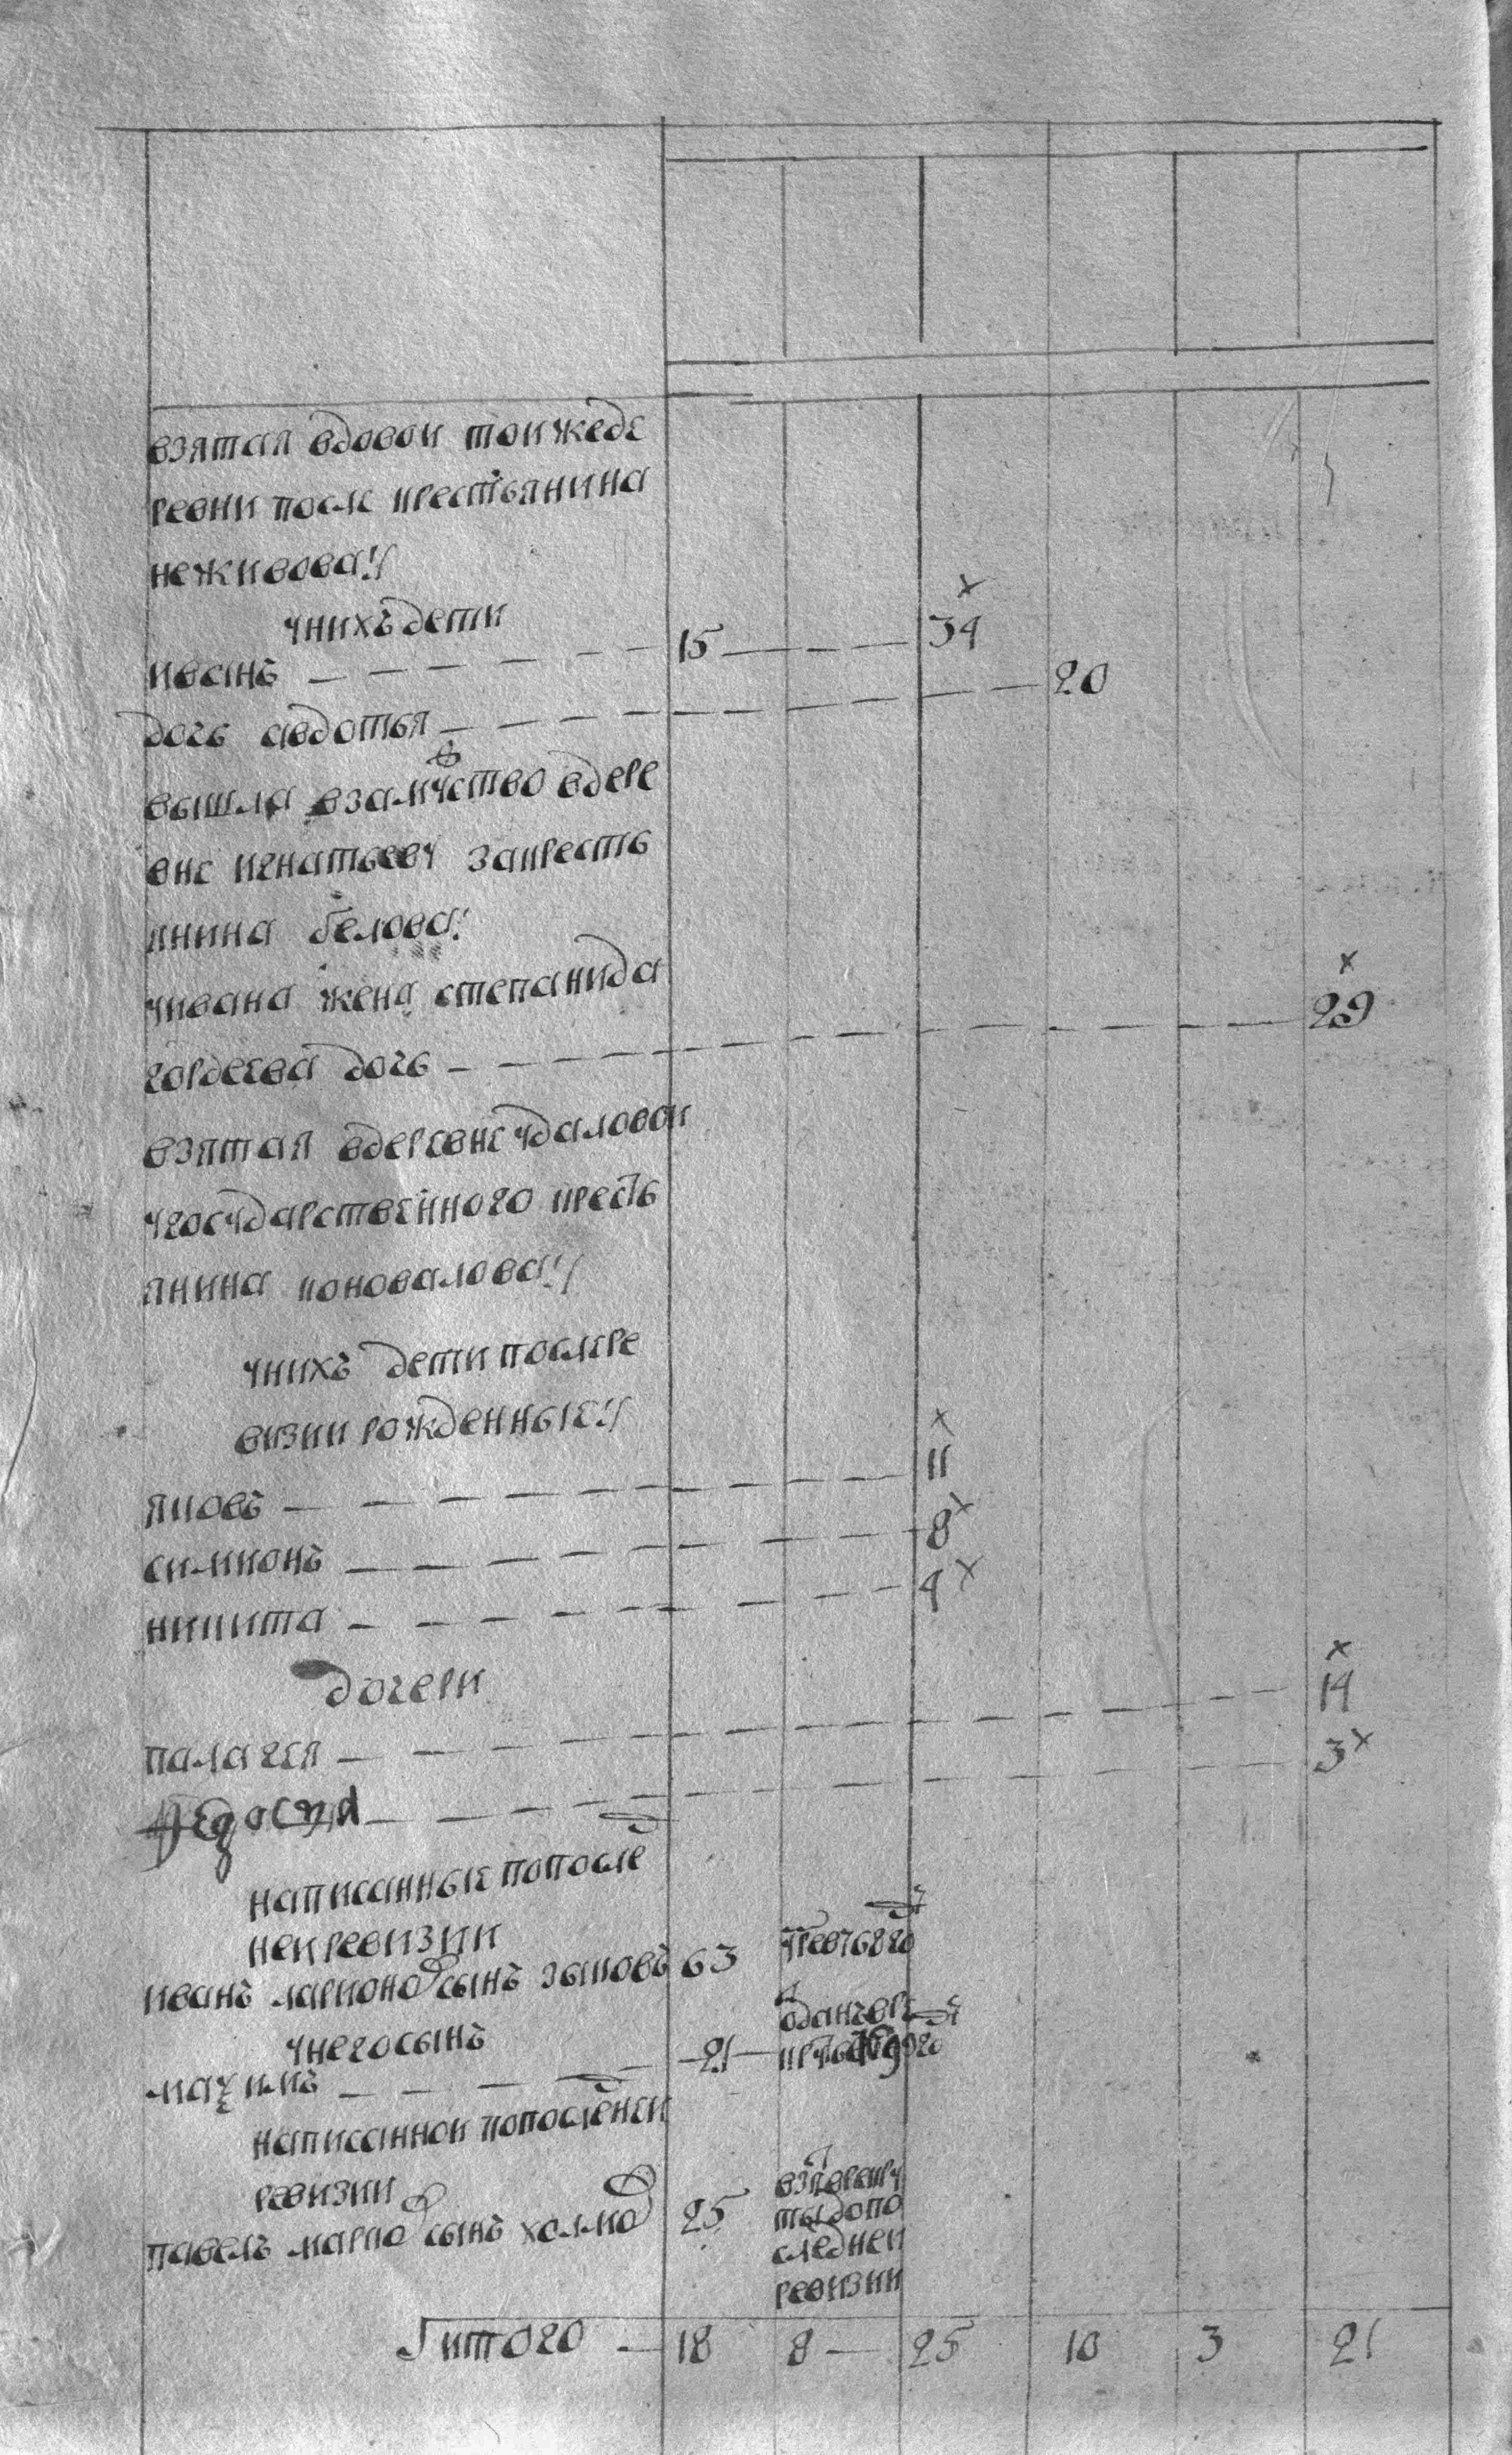 взятая вдовои тоижеде
ревни после крестьянина
неживова //
унихъ дети
иванъ — 15 — 34
дочь авдотья — 20
вышла взамуство вдере
вне игнатьеву закресть
янина белова:
уивана жена степанида
гордеева дочь — 29
взятая вдеревне удаловои
угосударственного кресть
янина коновалова //
уних дети послере
визии рожденные //
яковъ — 11
симионъ — 8
никита — 4
дочери
палагея — 14
Федосья — 3
написанные попосле
неи ревизии
иванъ ларионовъ сынъ зыковъ 63
унего сынъ
маѯимъ — 21
написаннои попосленеи
ревизии
павелъ марковъ сынъ холмов 25
рекру
ты допо
следнеи
ревизии
итого — 18 8 — 25 10 3 21